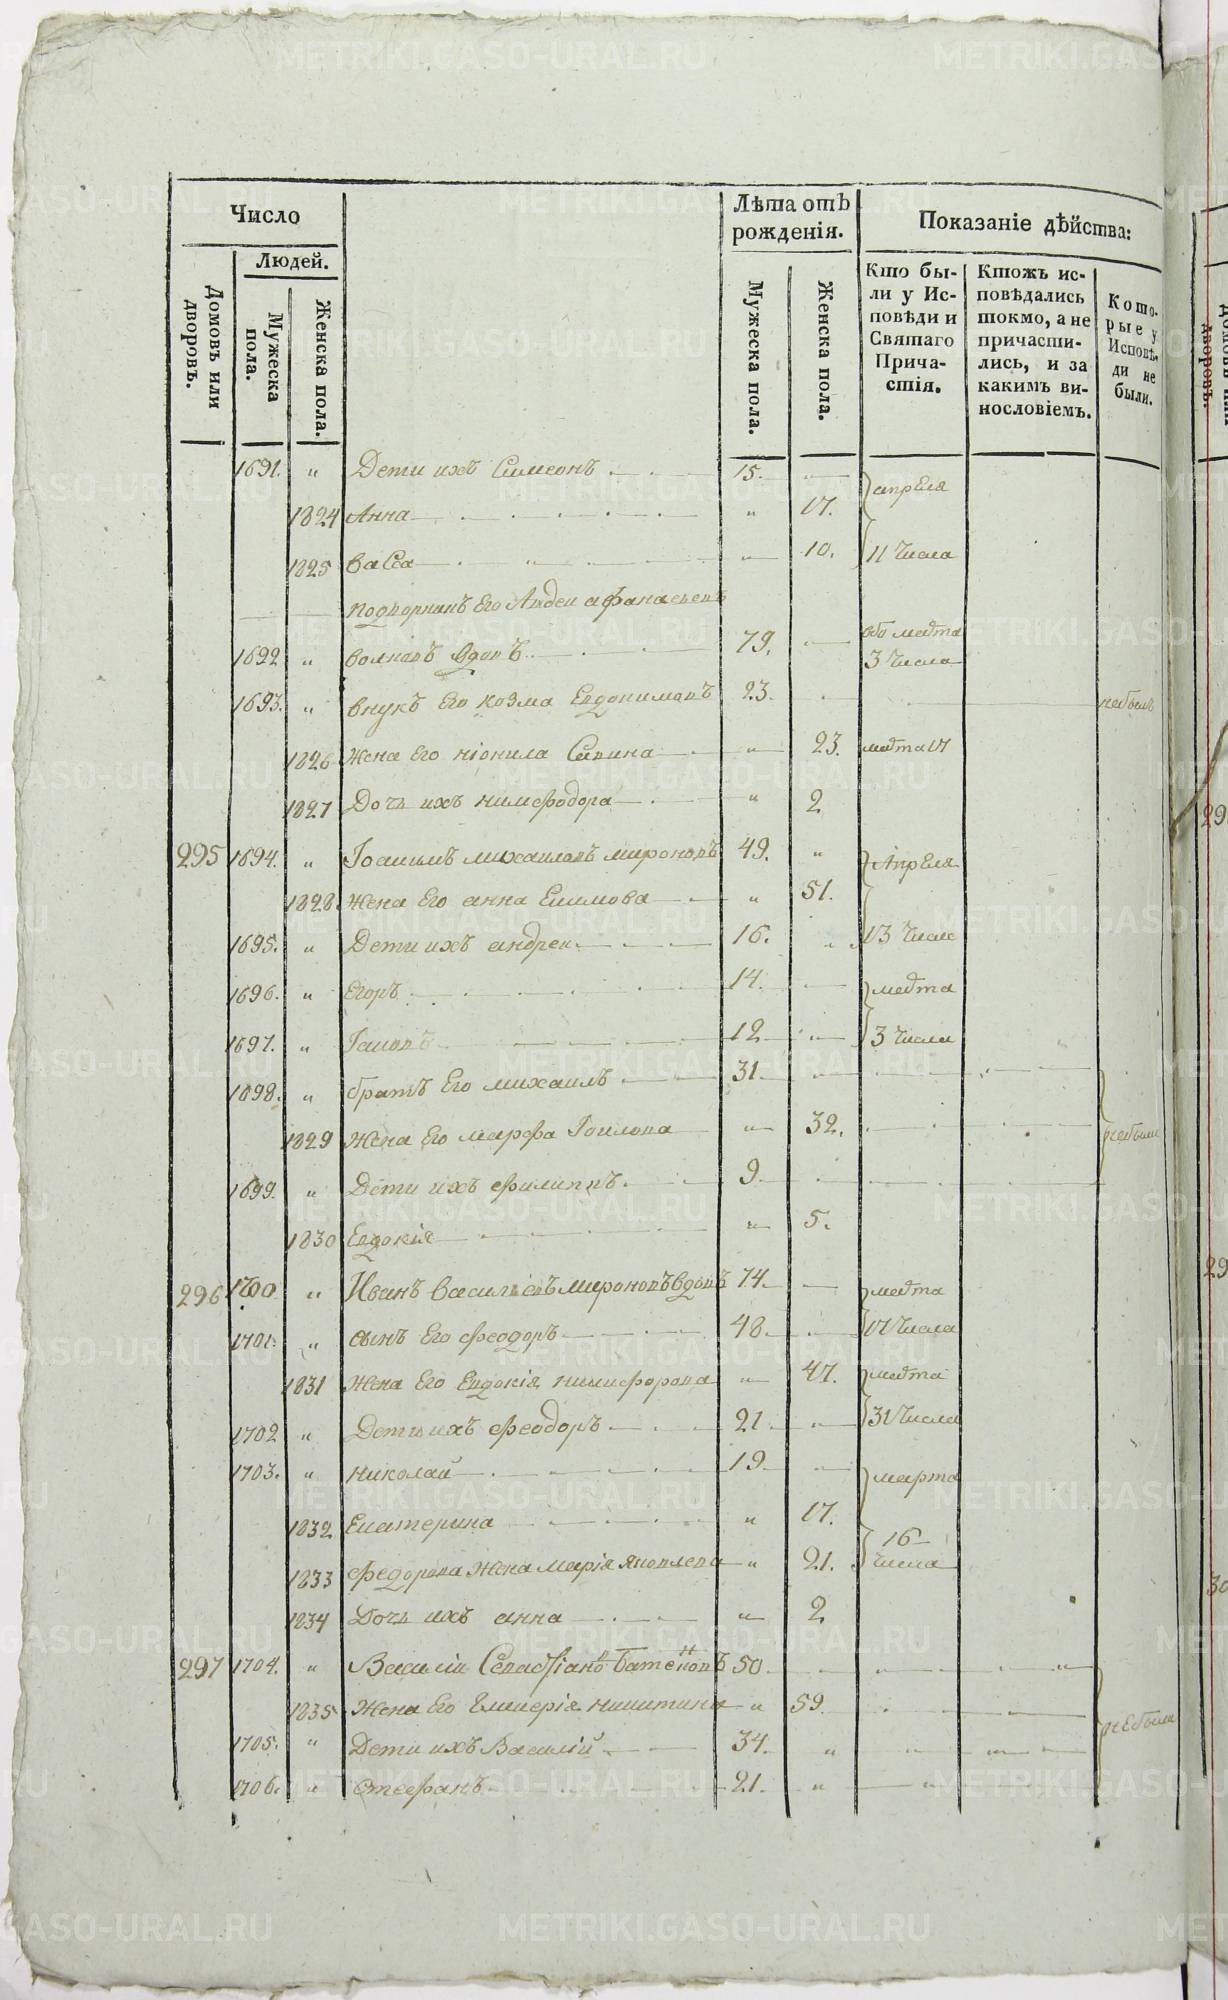 Число
Людей.
Домовъ или дворовъ.
Мужеска пола.
Женска пола.
Лѣта отъ рожденія.
Мужеска пола.
Женска пола.
Показаніе дѣйства:
Кто бы-
ли у Ис-
повѣди и
Святаго
Прича-
стія.
Ктожъ ис-
повѣдались
токмо, а не
причасти-
лись, и за
какимъ ви-
нословіемъ.
Кото-
рые у
Исповѣ-
ди не
были.
1691. " Дети ихъ Симеонъ 15. апреля
1824 Анна " 17.
1825 васса " 10. 11 Числа
Его Людеи афанасьевъ
1692 " волковъ вдовъ 79. марта 3 Числа
1693. " внукъ Его козма Евдокимовъ 23. небылъ
1826 Жена Его Савина " 23. марта 17
1827 Дочь ихъ нимфодора " 2
295 1694. " Іоакимъ михаиловъ мироновъ 49. " Апреля
1828. Жена Его анна Екимова " 51.
1695. " Дети ихъ андреи 16. " 13 Числа
1696. " Егоръ 14. марта
1697. " Іаковъ 12 3 Числа
1698. " братъ Его михаилъ 31
1829 Жена Его марфа " 32. небыли
1699. " Дети ихъ филиппъ 9
1830 Евдокія " 5.
296 1700 " Иванъ васильевъ мироновъ вдовъ 74. марта
1701. " сынъ Его феодоръ 48 17 Числа
1831 Жена Его Евдокія никифорова " 47. марта
1702 " Дети ихъ феодоръ 21 31 Числа
1703. " николай 19 марта
1832 Екатерина " 17.
16
1833 федорова Жена марія яковлева " 21. Числа
1834 Дочь ихъ анна " 2
297 1704. " Василіи Севастіановъ 50
1835 Жена Его никитина " 59 небыли
1705. " Дети ихъ Василій 34. "
1706. " стефанъ 21. "
METRIKI.GASO-URAL.RU